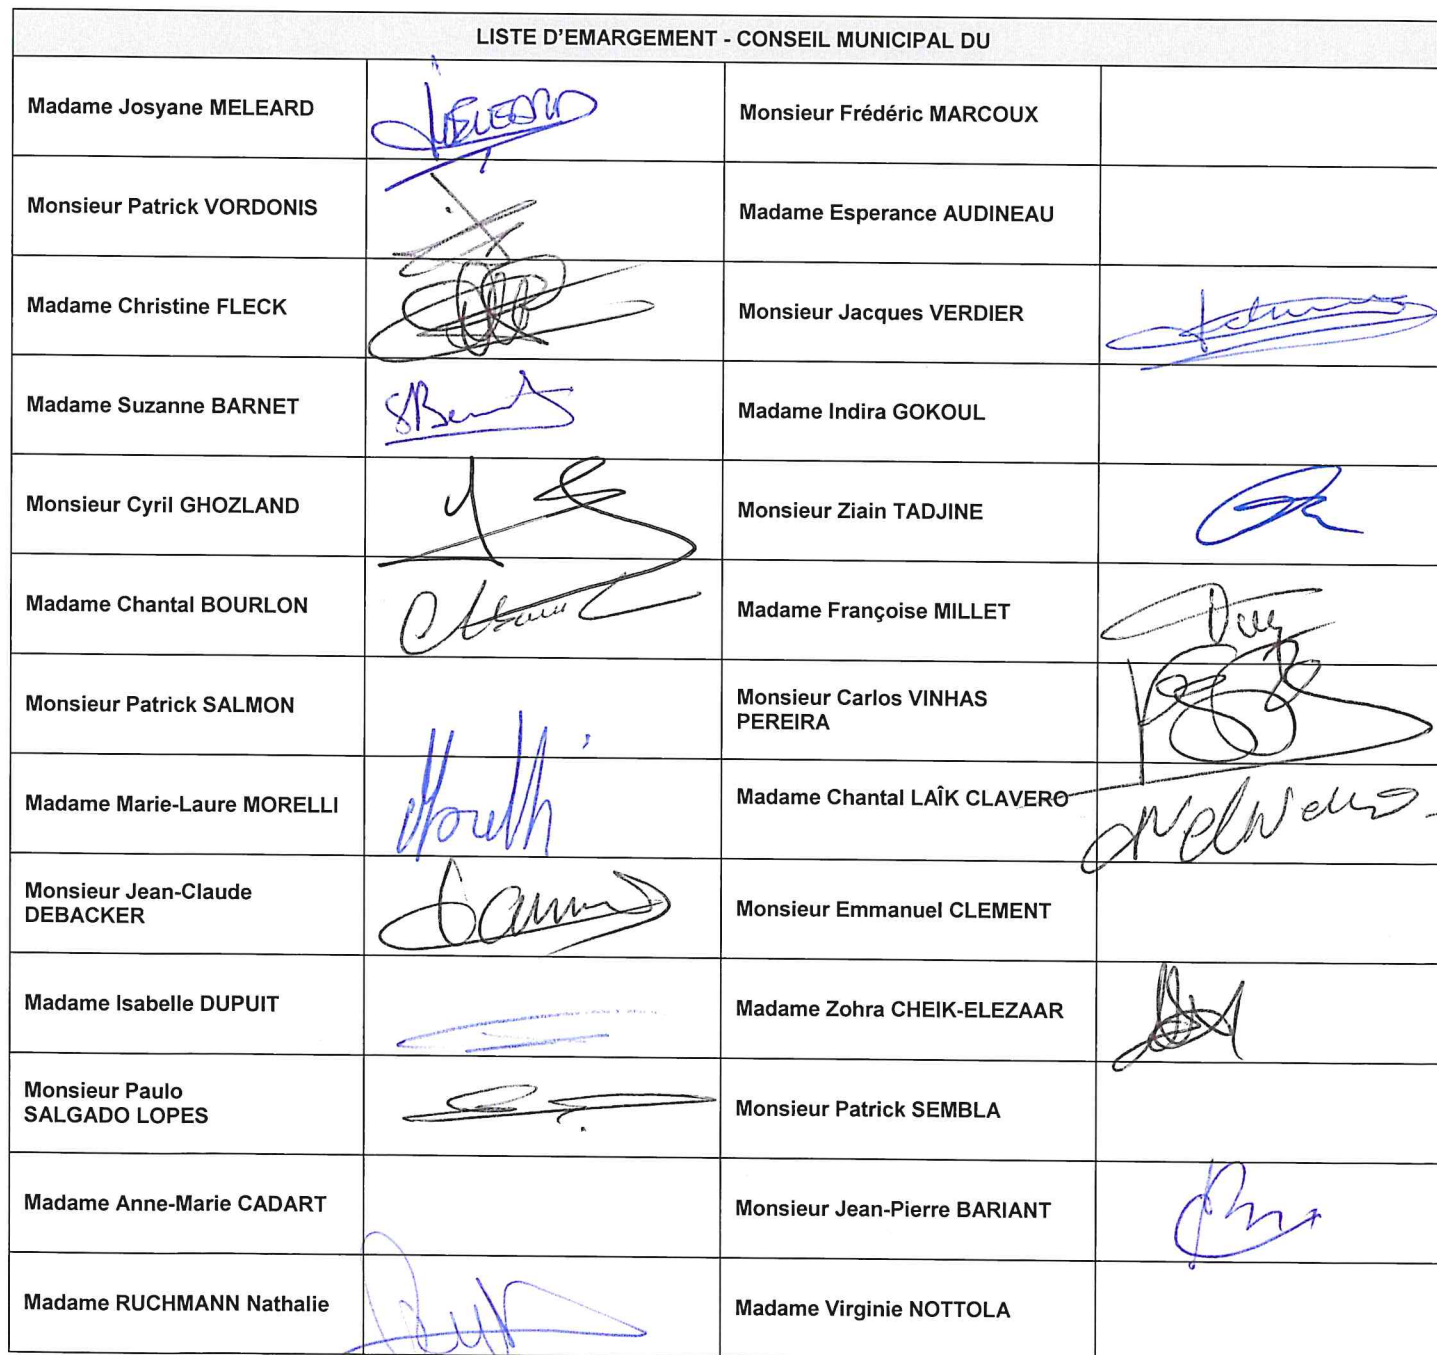 LISTE D'EMARGEMENT - CONSEIL MUNICIPAL DU
Madame Josyane MELEARD
MELEARD
Monsieur Frédéric MARCOUX
Monsieur Patrick VORDONIS
Madame Esperance AUDINEAU
Madame Christine FLECK
Monsieur Jacques VERDIER
Madame Suzanne BARNET
Madame Indira GOKOUL
Monsieur Cyril GHOZLAND
Monsieur Ziain TADJINE
Madame Chantal BOURLON
Madame Françoise MILLET
Monsieur Patrick SALMON
Monsieur Carlos VINHAS
PEREIRA
Madame Marie-Laure MORELLI
Morelli
Madame Chantal LAÎK CLAVERO
Monsieur Jean-Claude
DEBACKER
Monsieur Emmanuel CLEMENT
Madame Isabelle DUPUIT
Madame Zohra CHEIK-ELEZAAR
Monsieur Paulo
SALGADO LOPES
Monsieur Patrick SEMBLA
Madame Anne-Marie CADART
Monsieur Jean-Pierre BARIANT
Madame RUCHMANN Nathalie
Madame Virginie NOTTOLA